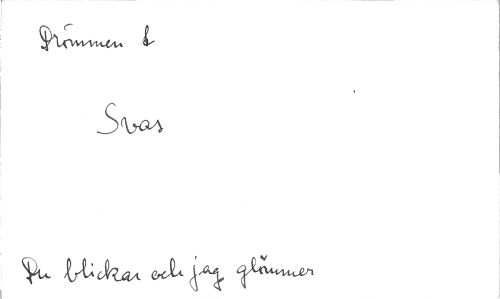 Drömmen
Svas
Du blickar och jag glömmer